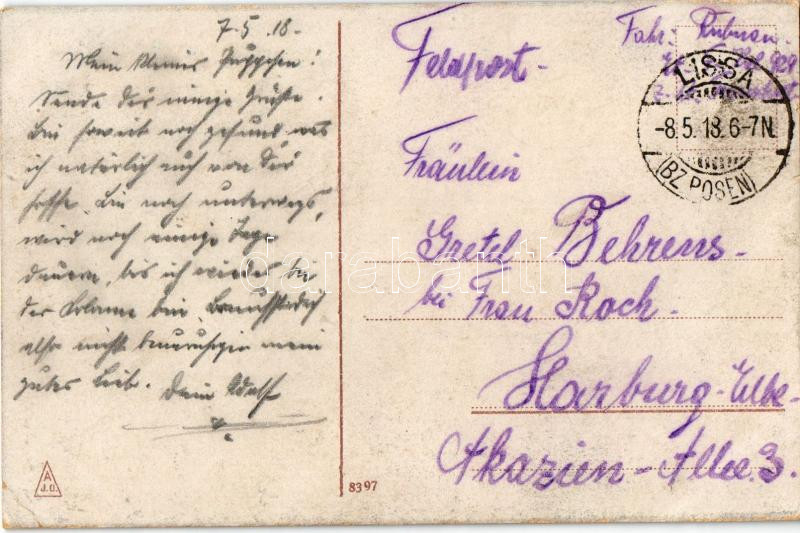 7.5.18.
Mein kleines Püppchen!
Sende dir einige Grüße.
Bin soweit noch gesund was
ich natürlich auch von Dir
hoffe. Bin noch unterwegs,
wird noch einige Tage
dauern, bis ich wieder bei
der Kolonne bin.
also nicht mein
gutes Lieb. Dein Adolf
Feldpost.
Fahr.
929
LISSA
-8.5.18.6-7N.
(BZ. POSEN)
Fräulein
Gretel Behrens.
bei Frau Koch.
Harburg-Elbe.
Akazien-Allee 3.
darabanth
A
J.O.
8397